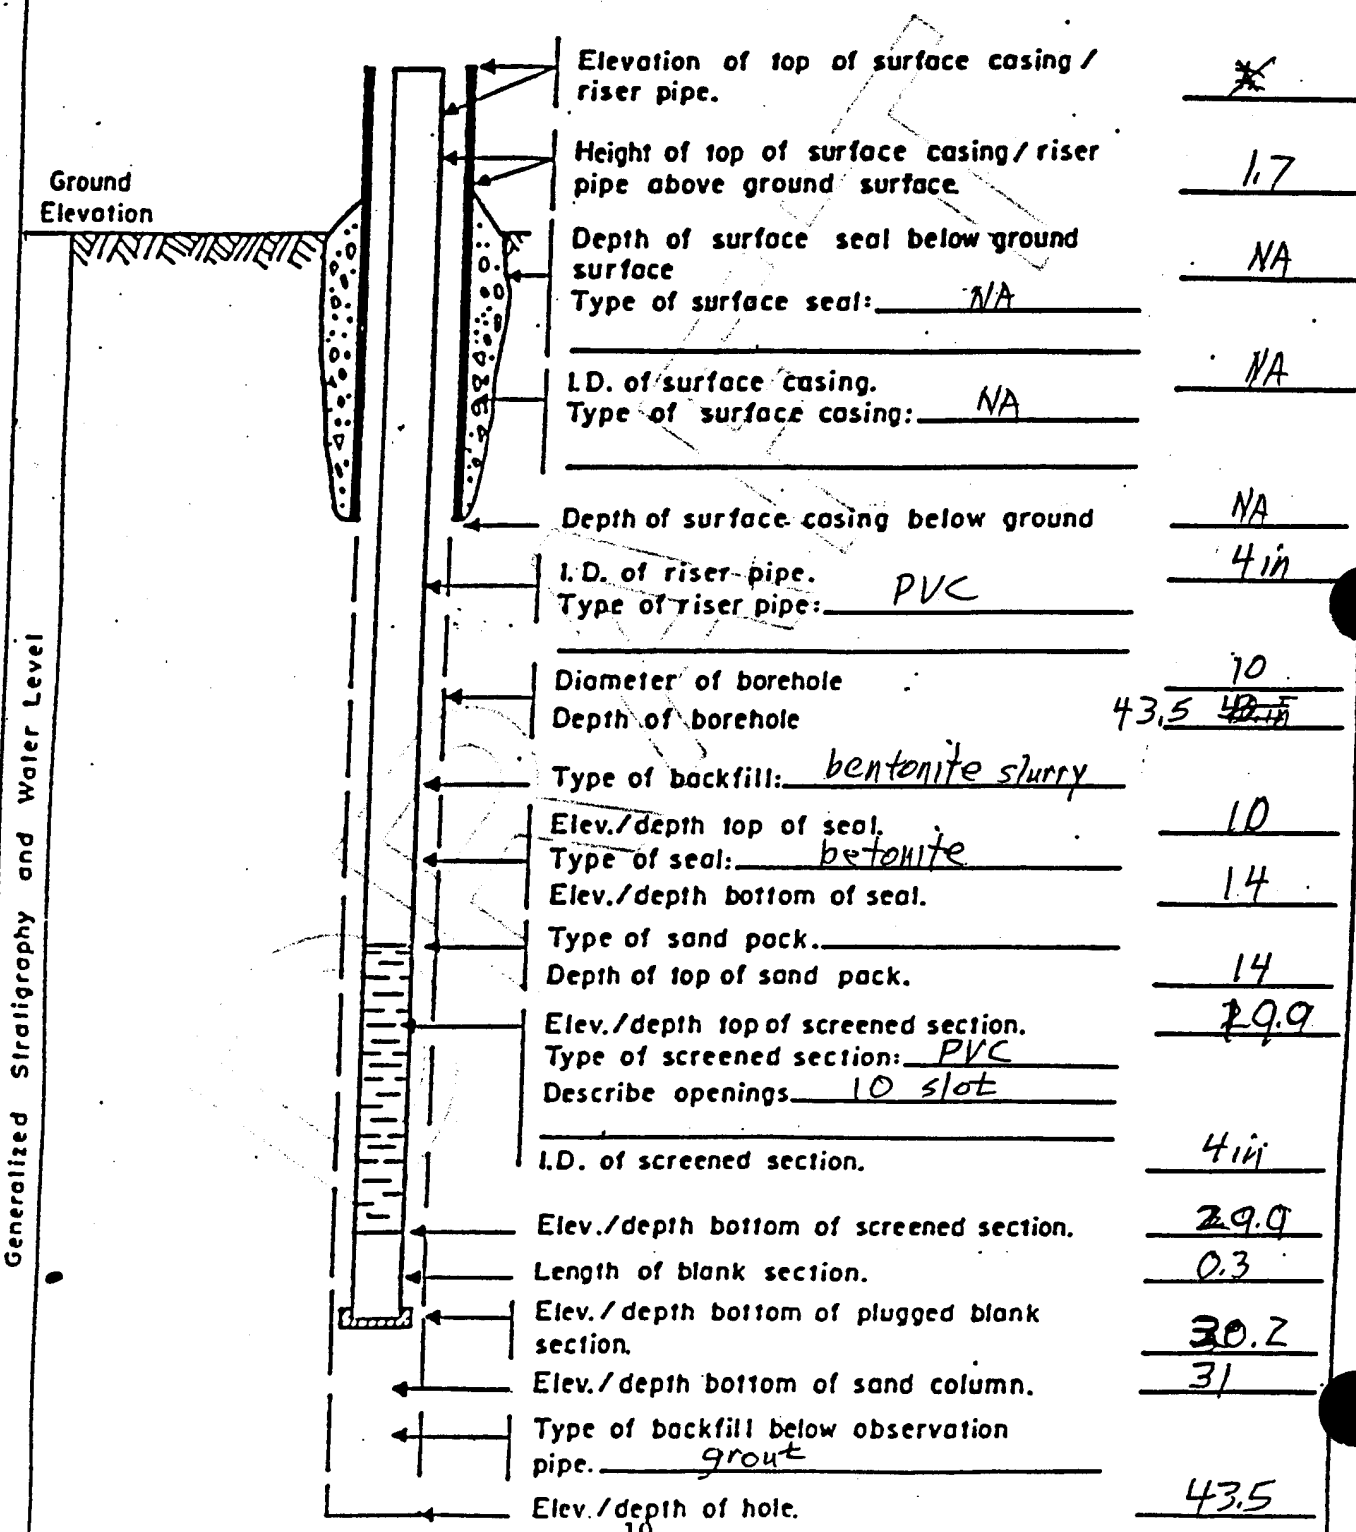 Elevation of top of surface casing /
riser pipe.
Height of top of surface casing / riser
pipe above ground surface 1.7
Ground
Elevation
Depth of surface seal below ground
surface NA
Type of surface seal: NA
I.D. of surface casing. NA
Type of surface casing: NA
Depth of surface casing below ground NA
I.D. of riser pipe. 4 in
Type of riser pipe: PVC
Diameter of borehole 10
Depth of borehole 43.5
Type of backfill: bentonite slurry
Elev./depth top of seal. 10
Type of seal: betonite
Elev./depth bottom of seal. 14
Type of sand pack.
Depth of top of sand pack. 14
Elev./depth top of screened section.
Type of screened section: PVC
Describe openings 10 slot
I.D. of screened section. 4 in
Elev./depth bottom of screened section. 29.9
Length of blank section. 0.3
Elev./depth bottom of plugged blank
section. 30.2
Elev./depth bottom of sand column. 31
Type of backfill below observation
pipe. grout
Elev./depth of hole. 43.5
Generalized Stratigraphy and Water Level